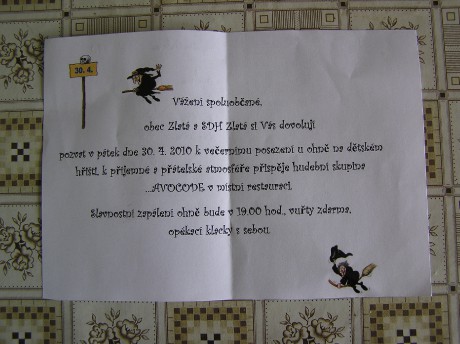 30. 4.
Vážení spoluobčané,
obec Zlatá a SDH Zlatá si Vás dovolují
pozvat v pátek dne 30. 4. 2010 k večernímu posezení u ohně na dětském
hřišti, k příjemné a přátelské atmosféře přispěje hudební skupina
...AVOCODE v místní restauraci.
Slavnostní zapálení ohně bude v 19.00 hod., vuřty zdarma,
opékací klacky s sebou.